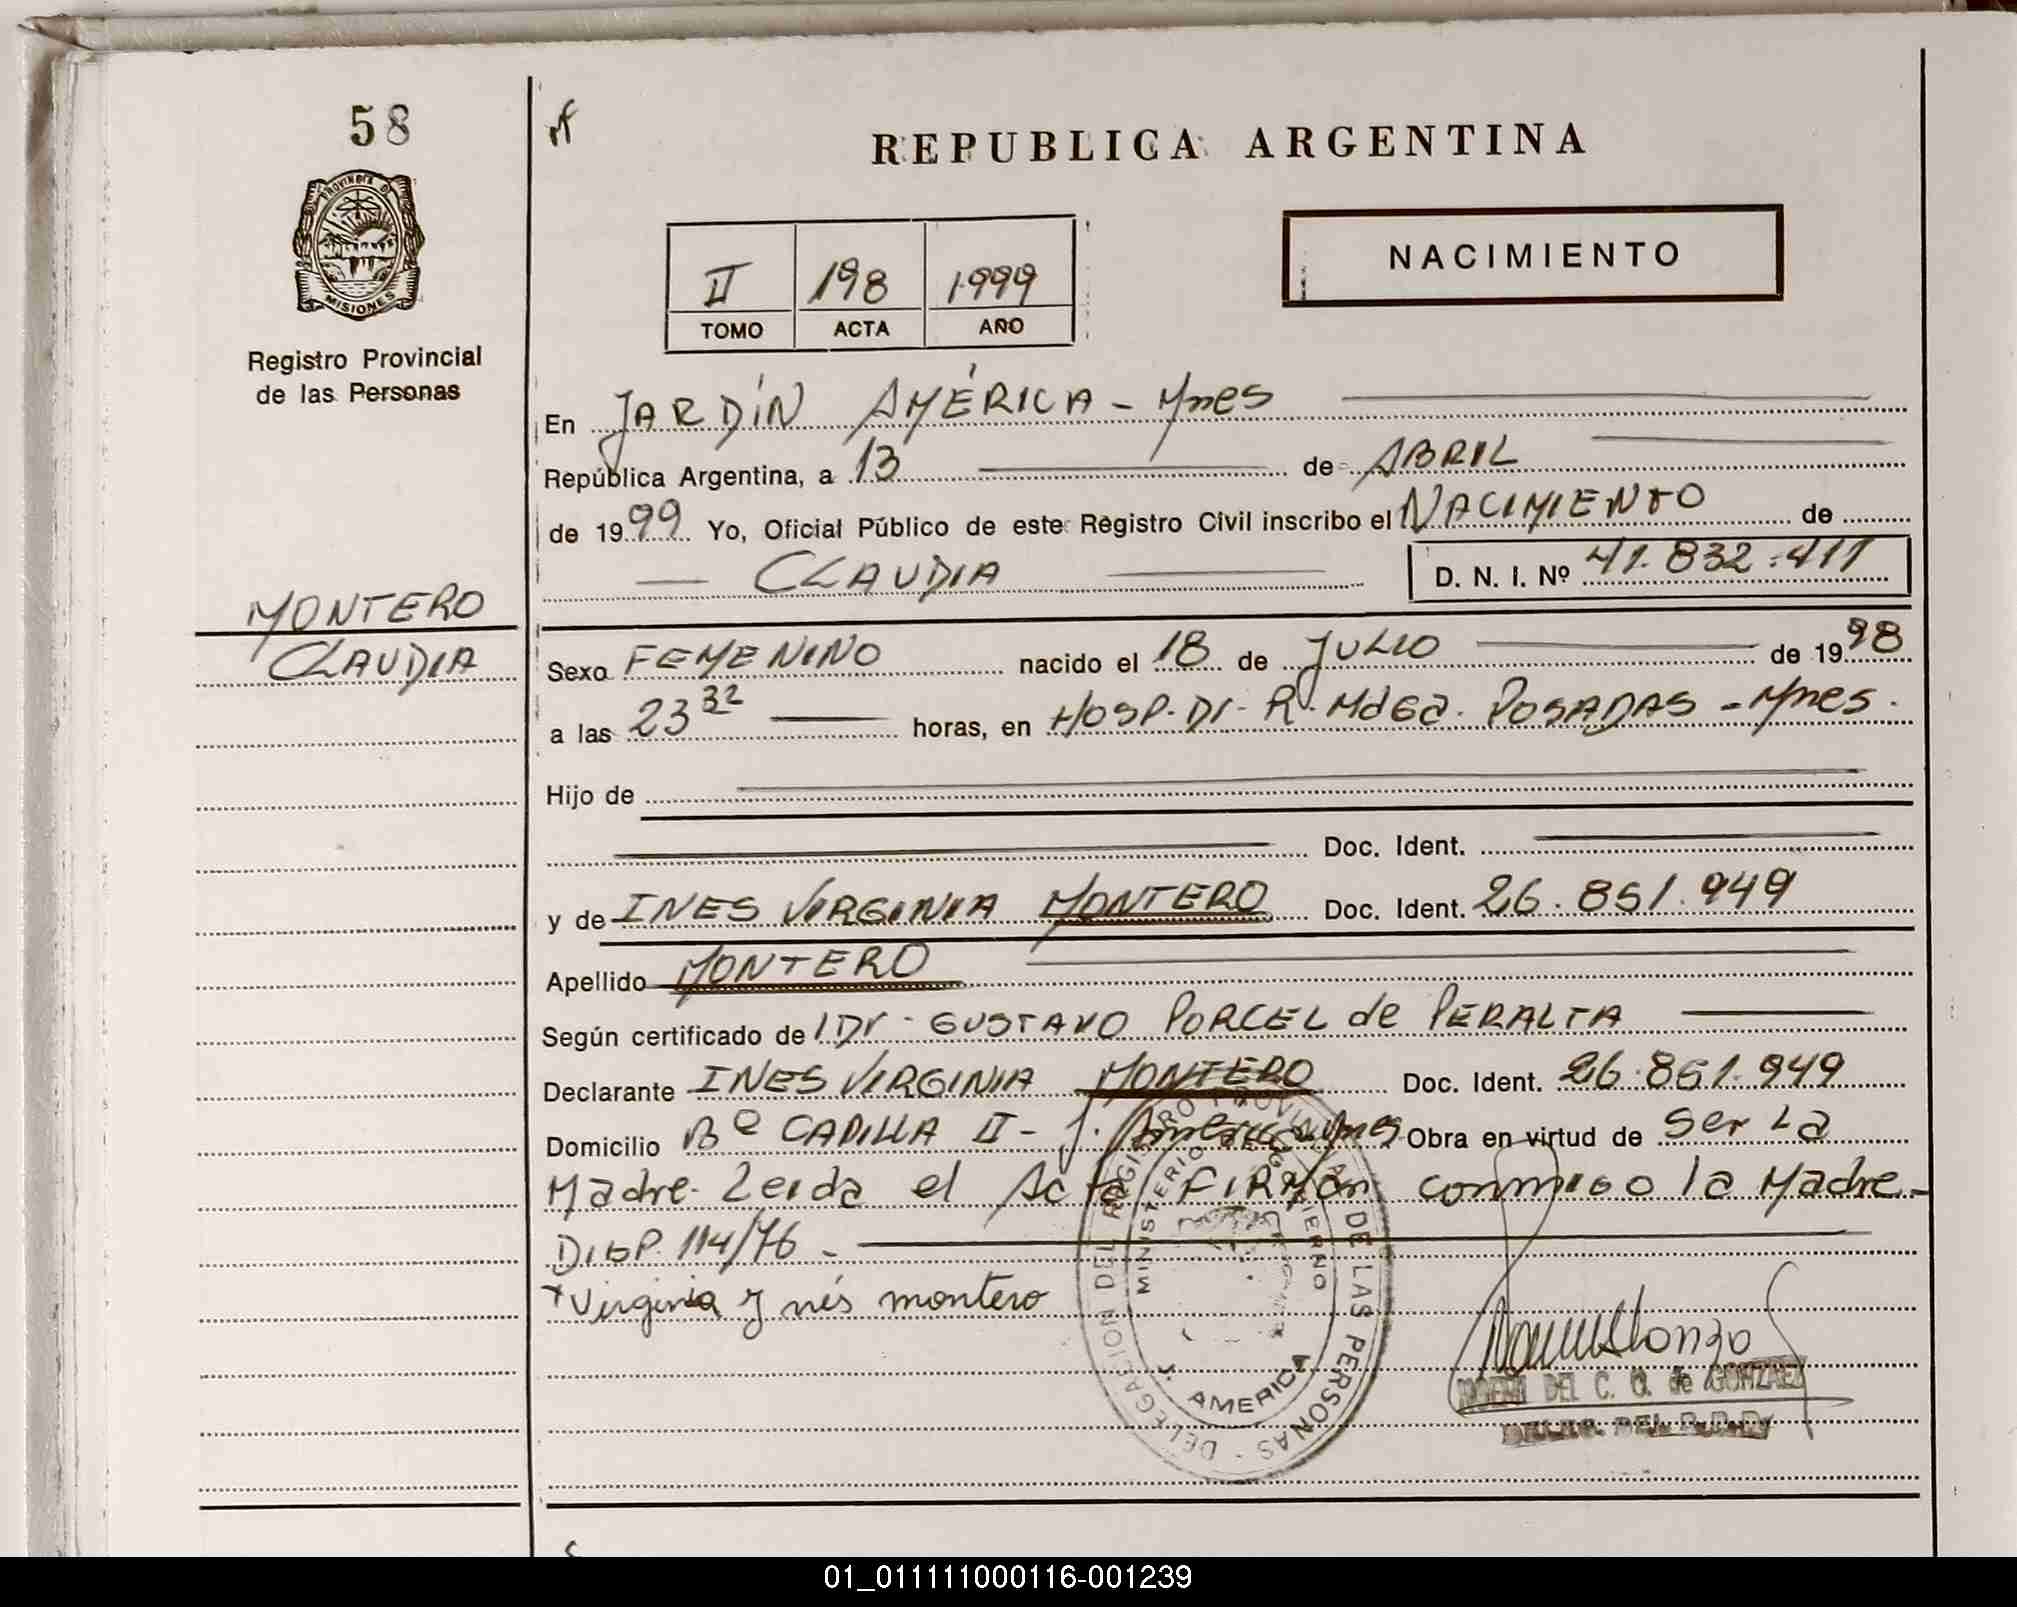 58
REPUBLICA ARGENTINA
PROVINCIA DE
MISIONES
Registro Provincial
de las Personas
II 198 1999
TOMO ACTA AÑO
NACIMIENTO
En JARDÍN AMÉRICA - Mnes
República Argentina, a 13 de ABRIL
de 1999 Yo, Oficial Público de este Registro Civil inscribo el NACIMIENTO de
CLAUDIA D. N. I. Nº 41.832.411
MONTERO
CLAUDIA
Sexo FEMENINO nacido el 18 de JULIO de 1998
a las 23 32 horas, en HOSP. Dr. R. Mdga. POSADAS - Mnes.
Hijo de
Doc. Ident.
y de INES VIRGINIA MONTERO Doc. Ident. 26.851.949
Apellido MONTERO
Según certificado de Dr. GUSTAVO PORCEL de PERALTA
Declarante INES VIRGINIA MONTERO Doc. Ident. 26.851.949
Domicilio Bº CAPILLA II - J. América Mnes Obra en virtud de ser La
Madre. Leida el Acta FIRMAN conmigo la Madre.
DISP. 114/76 -
Virginia Y nés montero
DELEGACION DEL REGISTRO PROVINCIAL DE LAS PERSONAS
MINISTERIO DE GOBIERNO
J. AMERICA
DEL C. Q. de GONZALEZ
01_011111000116-001239